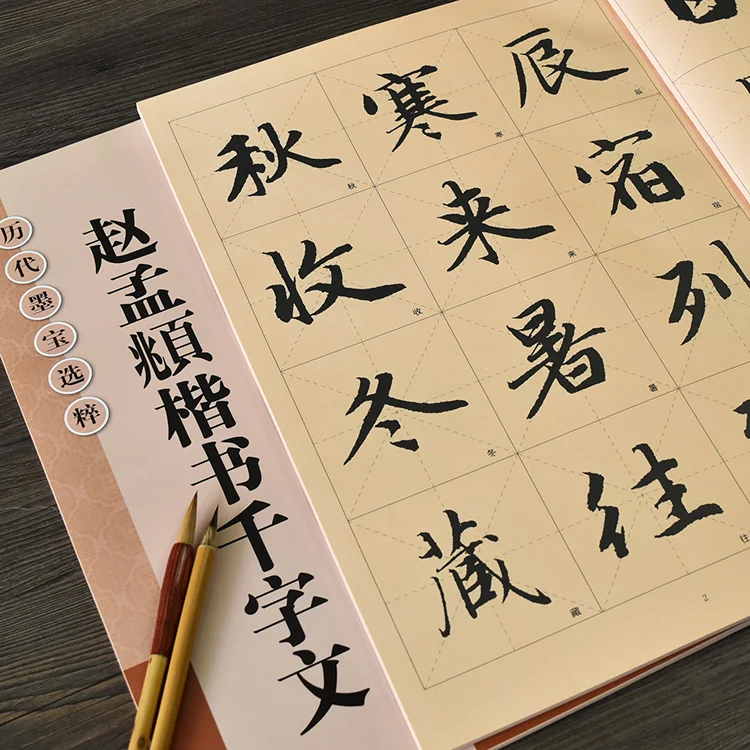 历代墨宝选粹
赵孟頫楷书千字文
辰宿列
辰宿
寒来暑往
寒来暑往
秋收冬藏
秋收冬藏
2